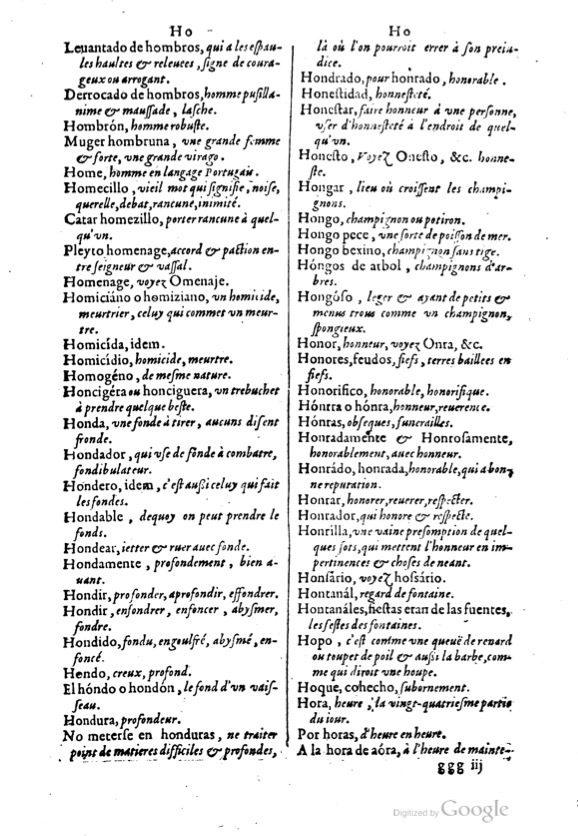 Ho
Leuantado de hombros, qui a les espau-
les haultes & releuees, signe de coura-
geux ou arrogant.
Derrocado de hombros, homme pusilla-
nime & maussade, lasche.
Hombrón, homme robuste.
Muger hombruna, vne grande femme
& forte, vne grande virago.
Home, homme en langage Portugais.
Homecillo, vieil mot qui signifie, noise,
querelle, debat, rancune, inimité.
Catar homezillo, porter rancune à quel-
qu'vn.
Pleyto homenage, accord & paction en-
tre seigneur & vassal.
Homenage, voyez Omenaje.
Homiciáno o homiziano, vn homicide,
meurtrier, celuy qui commet vn meur-
tre.
Homicída, idem.
Homicídio, homicide, meurtre.
Homogéno, de mesme nature.
Honcigéra ou honciguera, vn trebuchet
à prendre quelque beste.
Honda, vne fonde à tirer, aucuns disent
fronde.
Hondador, qui vse de fonde à combatre,
fondibulateur.
Hondero, idem, c'est aussi celuy qui fait
les fondes.
Hondable, dequoy on peut prendre le
fonds.
Hondear, ietter & ruer auec fonde.
Hondamente, profondement, bien a-
uant.
Hondir, profonder, aprofondir, effondrer.
Hondir, enfondrer, enfoncer, abysmer,
fondre.
Hondido, fondu, engoulfré, abysmé, en-
foncé.
Hendo, creux, profond.
El hóndo o hondón, le fond d'vn vais-
seau.
Hondura, profondeur.
No meterse en honduras, ne traiter
point de matieres difficiles & profondes,
Ho
là où l'on pourroit errer à son preiu-
dice.
Hondrado, pour honrado, honorable.
Honestidad, honnesteté.
Honestar, faire honneur à vne personne,
vser d'honnesteté à l'endroit de quel-
qu'vn.
Honesto, Voyez Onesto, &c. honne-
ste.
Hongar, lieu où croissent les champi-
gnons.
Hongo, champignon ou potiron.
Hongo pece, vne sorte de poisson de mer.
Hongo bexino, champignon sans tige.
Hóngos de arbol, champignons d'ar-
bres.
Hongóso, leger & ayant de petits &
menus trous comme vn champignon,
spongieux.
Honor, honneur, voyez Onra, &c.
Honores, feudos, fiefs, terres baillees en
fiefs.
Honorifico, honorable, honorifique.
Hóntra o hónra, honneur, reuerence.
Hónras, obseques, funerailles.
Honradamente & Honrosamente,
honorablement, auec honneur.
Honrádo, honrada, honorable, qui a bon-
ne reputation.
Honrar, honorer, reuerer, respecter.
Honrador, qui honore & respecte.
Honrilla, vne vaine presomption de quel-
ques sots, qui mettent l'honneur en im-
pertinences & choses de neant.
Honsário, voyez hossário.
Hontanál, regard de fontaine.
Hontanáles, fiestas eran de las fuentes,
les festes des fontaines.
Hopo, c'est comme vne queuë de renard
ou toupet de poil & aussi la barbe, com-
me qui diroit vne houpe.
Hoque, cohecho, subornement.
Hora, heure, la vingt-quatriesme partie
du iour.
Por horas, d'heure en heure.
A la hora de aóra, à l'heure de mainte-
ggg iij
Digitized by Google